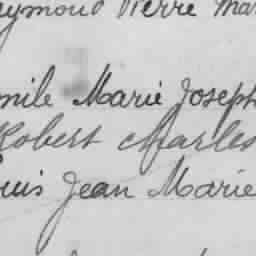 aymond Pierre Mar
mile Marie Joseph
Robert Charles
ouis Jean Marie